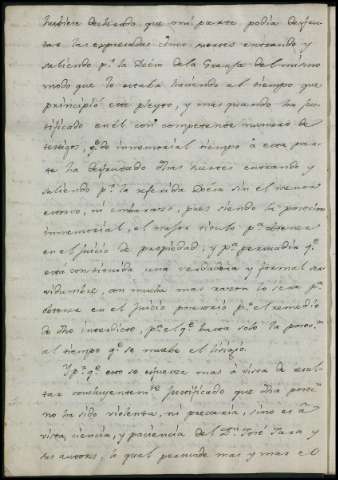 hubiese declarado que mi parte podia disfru-
tar las expresadas cinco suertes entrando y
saliendo pr. la Decia de la Granja del mismo
modo que lo estaba haciendo al tiempo que
principió este pleyto, y mas quando ha jus-
tificado en él con competente numero de
testigos, qe. de inmemorial tiempo á esta par-
te ha disfrutado dhas suertes entrando y
saliendo pr. la referida Decia sin el menor
estorvo, ni embarazo, pues siendo la posesion
inmemorial, el mejor titulo pa. obtener
en el juicio de propiedad, y pa. persuadir qe.
está constituida una verdadera y formal ser-
vidumbre, con mucha mas razon lo será pa.
obtener en el juicio posesorio pr. el remedio
de dho interdicto, pa. el qe. basta solo la poses.on
al tiempo qe. se mueve el litigio.
Y pr. qe. esto se esfuerza mas á vista de resul-
tar concluyentem.te justificado que dha poses.on
no ha sido violenta, ni precaria, sino es á
vista, ciencia, y paciencia del Dn. José Jara, y
sus autores, lo qual persuade mas y mas el